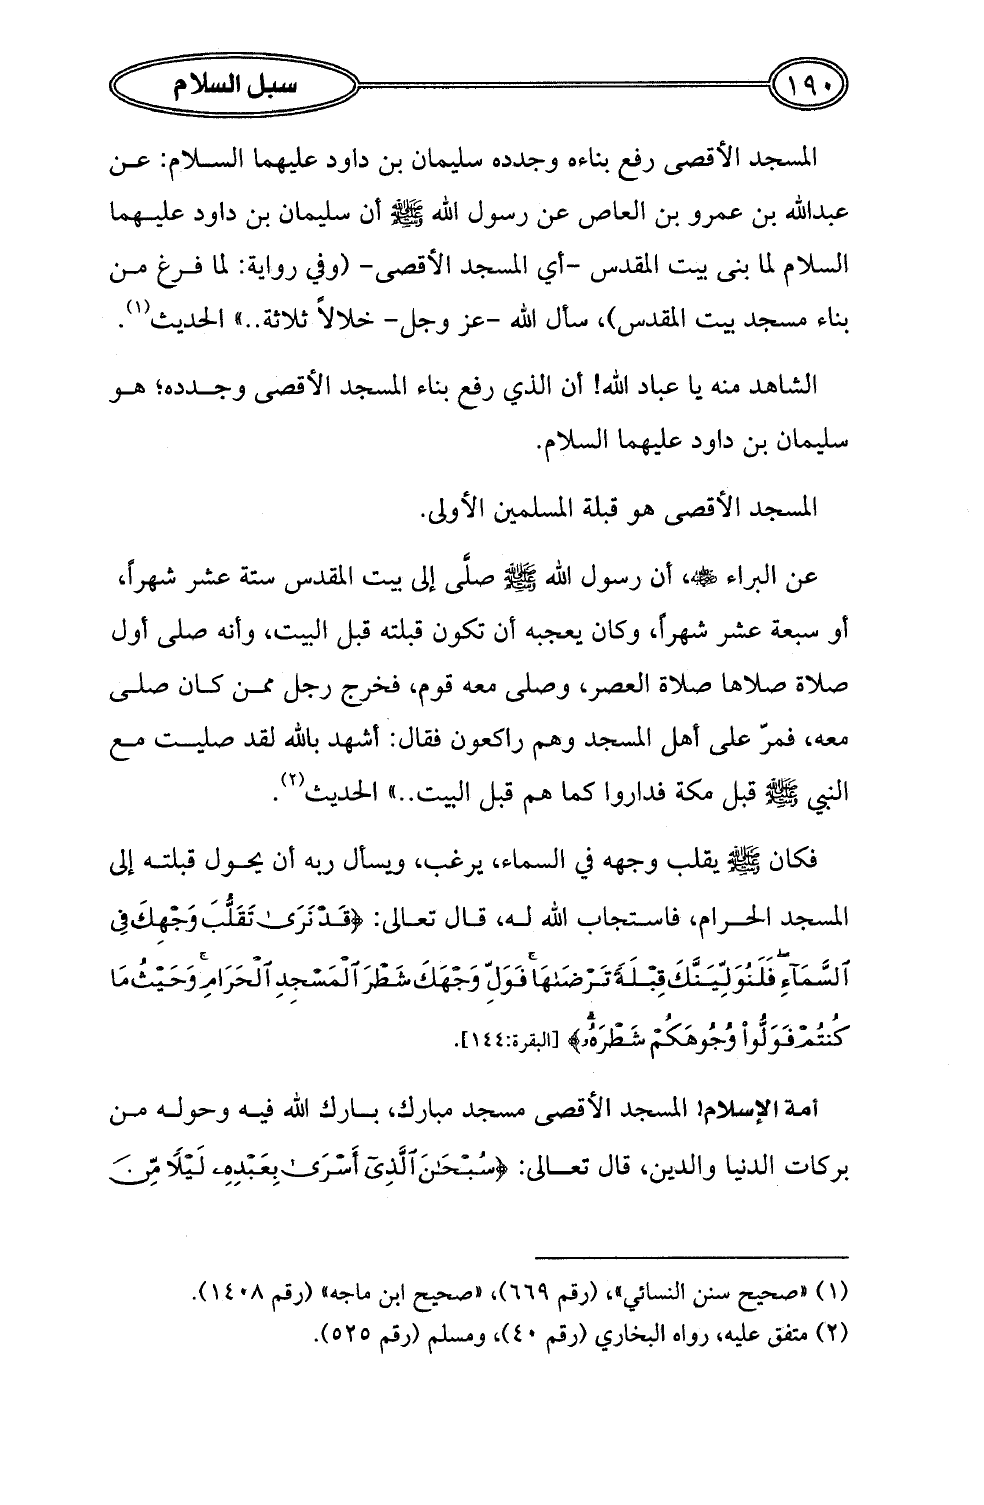 ١٩٠
سبل السلام
المسجد الأقصى رفع بناءه وجدده سليمان بن داود عليهما السلام: عن
عبدالله بن عمرو بن العاص عن رسول الله ﷺ أن سليمان بن داود عليهما
السلام لما بنى بيت المقدس -أي المسجد الأقصى- (وفي رواية: لما فرغ من
بناء مسجد بيت المقدس)، سأل الله -عز وجل- خلالاً ثلاثة..» الحديث(١).
الشاهد منه يا عباد الله! أن الذي رفع بناء المسجد الأقصى وجدده؛ هو
سليمان بن داود عليهما السلام.
المسجد الأقصى هو قبلة المسلمين الأولى.
عن البراء رضي الله عنه، أن رسول الله ﷺ صلَّى إلى بيت المقدس ستة عشر شهراً،
أو سبعة عشر شهراً، وكان يعجبه أن تكون قبلته قبل البيت، وأنه صلى أول
صلاة صلاها صلاة العصر، وصلى معه قوم، فخرج رجل ممن كان صلى
معه، فمرّ على أهل المسجد وهم راكعون فقال: أشهد بالله لقد صليت مع
النبي ﷺ قبل مكة فداروا كما هم قبل البيت..» الحديث(٢).
فكان ﷺ يقلب وجهه في السماء، يرغب، ويسأل ربه أن يحول قبلته إلى
المسجد الحرام، فاستجاب الله له، قال تعالى: ﴿قَدْ نَرَىٰ تَقَلُّبَ وَجْهِكَ فِي
السَّمَآءِ ۖ فَلَنُوَلِّيَنَّكَ قِبْلَةً تَرْضَىٰهَا ۚ فَوَلِّ وَجْهَكَ شَطْرَ ٱلْمَسْجِدِ ٱلْحَرَامِ ۚ وَحَيْثُ مَا
كُنتُمْ فَوَلُّوا۟ وُجُوهَكُمْ شَطْرَهُۥ ۗ﴾ [البقرة:١٤٤].
أمة الإسلام! المسجد الأقصى مسجد مبارك، بارك الله فيه وحوله من
بركات الدنيا والدين، قال تعالى: ﴿سُبْحَٰنَ ٱلَّذِىٓ أَسْرَىٰ بِعَبْدِهِۦ لَيْلًا مِّنَ
(١) «صحيح سنن النسائي»، (رقم ٦٦٩)، «صحيح ابن ماجه» (رقم ١٤٠٨).
(٢) متفق عليه، رواه البخاري (رقم ٤٠)، ومسلم (رقم ٥٢٥).